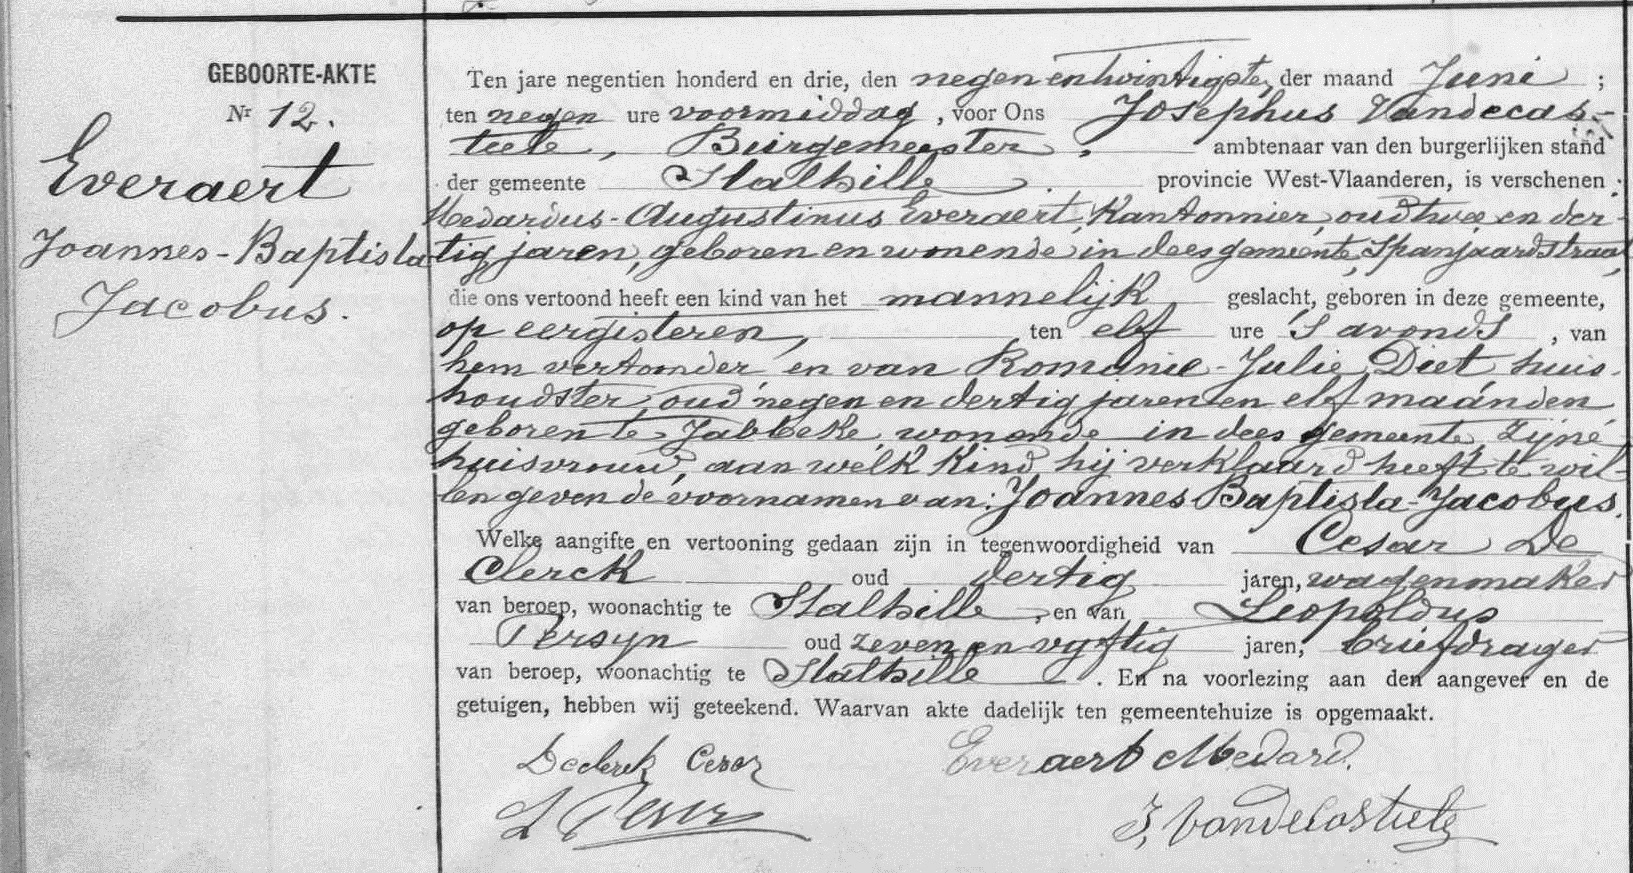 GEBOORTE-AKTE
Nr 12.
Everaert
Joannes-Baptista
Jacobus.
Ten jare negentien honderd en drie, den negenentwintigste, der maand Juni ;
ten negen ure voormiddag , voor Ons Josephus Vandecas-
teele, Burgemeester, ambtenaar van den burgerlijken stand
der gemeente Stalhille provincie West-Vlaanderen, is verschenen :
Medardus-Augustinus Everaert, Kantonnier, oud twee en der-
tig jaren, geboren en wonende in dees gemeente, Spanjaardstraat,
die ons vertoond heeft een kind van het mannelijk geslacht, geboren in deze gemeente,
op eergisteren, ten elf ure 's avonds , van
hem vertooner en van Romanie-Julie Diet huis-
houdster, oud negen en dertig jaren en elf maanden
geboren te Jabbeke, wonende in dees gemeente, zijne
huisvrouw, aan welk kind hij verklaard heeft te wil-
len geven de voornamen van: Joannes Baptista-Jacobus.
Welke aangifte en vertooning gedaan zijn in tegenwoordigheid van Cesar De
Clerck oud dertig jaren, wagenmaker
van beroep, woonachtig te Stalhille, en van Leopoldus
Persyn oud zeven en vyftig jaren, briefdrager
van beroep, woonachtig te Stalhille . En na voorlezing aan den aangever en de
getuigen, hebben wij geteekend. Waarvan akte dadelijk ten gemeentehuize is opgemaakt.
Declerck Cesar
Everaert Medard.
L Persyn
J. Vandecasteele